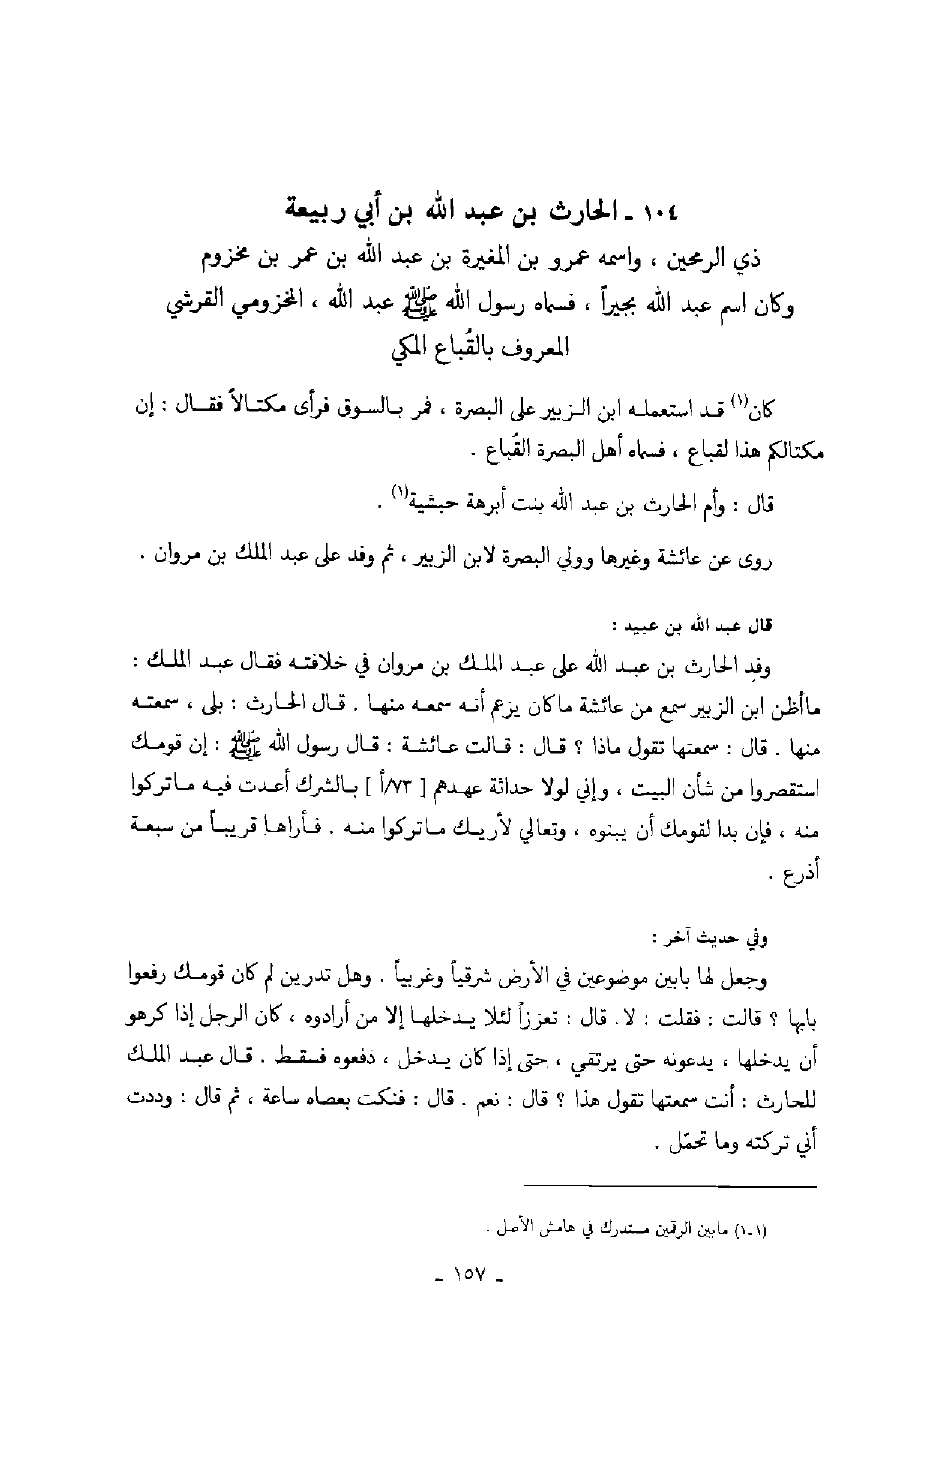 ١٠٤ ـ الحارث بن عبد الله بن أبي ربيعة
ذي الرمحين ، واسمه عمرو بن المغيرة بن عبد الله بن عمر بن مخزوم
وكان اسم عبد الله بجيراً ، فسماه رسول الله ﷺ عبد الله ، المخزومي القرشي
المعروف بالقُباع المكي
كان(١) قد استعمله ابن الزبير على البصرة ، فمر بالسوق فرأى مكتالاً فقال : إن
مكتالكم هذا لقباع ، فسماه أهل البصرة القُباع .
قال : وأم الحارث بن عبد الله بنت أبرهة حبشية(١) .
روى عن عائشة وغيرها وولي البصرة لابن الزبير ، ثم وفد على عبد الملك بن مروان .
قال عبد الله بن عبيد :
وفد الحارث بن عبد الله على عبد الملك بن مروان في خلافته فقال عبد الملك :
ماأظن ابن الزبير سمع من عائشة ماكان يزعم أنه سمعه منها . قال الحارث : بلى ، سمعته
منها . قال : سمعتها تقول ماذا ؟ قال : قالت عائشة : قال رسول الله ﷺ : إن قومك
استقصروا من شأن البيت ، وإني لولا حداثة عهدهم [ ٧٣/أ ] بالشرك أعدت فيه ماتركوا
منه ، فإن بدا لقومك أن يبنوه ، وتعالي لأريك ماتركوا منه . فأراها قريباً من سبعة
أذرع .
وفي حديث آخر :
وجعل لها بابين موضوعين في الأرض شرقياً وغربياً . وهل تدرين لم كان قومك رفعوا
بابها ؟ قالت : فقلت : لا. قال : تعززاً لئلا يدخلها إلا من أرادوه ، كان الرجل إذا كرهو
أن يدخلها ، يدعونه حتى يرتقي ، حتى إذا كان يدخل ، دفعوه فسقط . قال عبد الملك
للحارث : أنت سمعتها تقول هذا ؟ قال : نعم . قال : فنكت بعصاه ساعة ، ثم قال : وددت
أني تركته وما تحمّل .
(١-١) مابين الرقمين مستدرك في هامش الأصل .
ـ ١٥٧ ـ